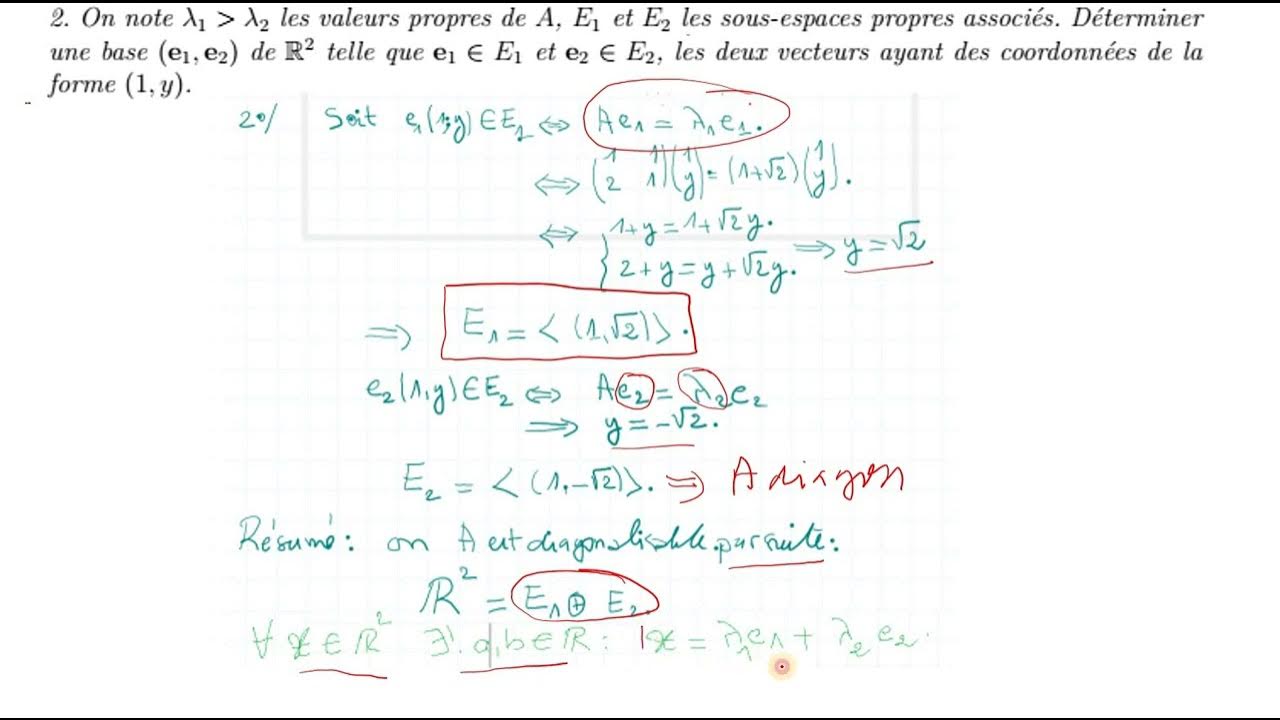 2. On note λ₁ > λ₂ les valeurs propres de A, E₁ et E₂ les sous-espaces propres associés. Déterminer
une base (e₁, e₂) de ℝ² telle que e₁ ∈ E₁ et e₂ ∈ E₂, les deux vecteurs ayant des coordonnées de la
forme (1, y).
2°/ Soit e₁(1,y) ∈ E₁ ⇔ Ae₁ = λ₁e₁.
⇔ (1 1
2 1)(1
y) = (1+√2)(1
y).
⇔ { 1+y = 1+√2y.
2+y = y+√2y. ⇒ y = √2
⇒ E₁ = < (1,√2) >.
e₂(1,y) ∈ E₂ ⇔ Ae₂ = λ₂e₂
⇒ y = -√2.
E₂ = < (1,-√2) >. ⇒ A diagon
Résumé : on A est diagonalisable. par suite :
ℝ² = E₁ ⊕ E₂.
∀ x ∈ ℝ² ∃! a,b ∈ ℝ : x = λ₁e₁ + λ₂e₂.